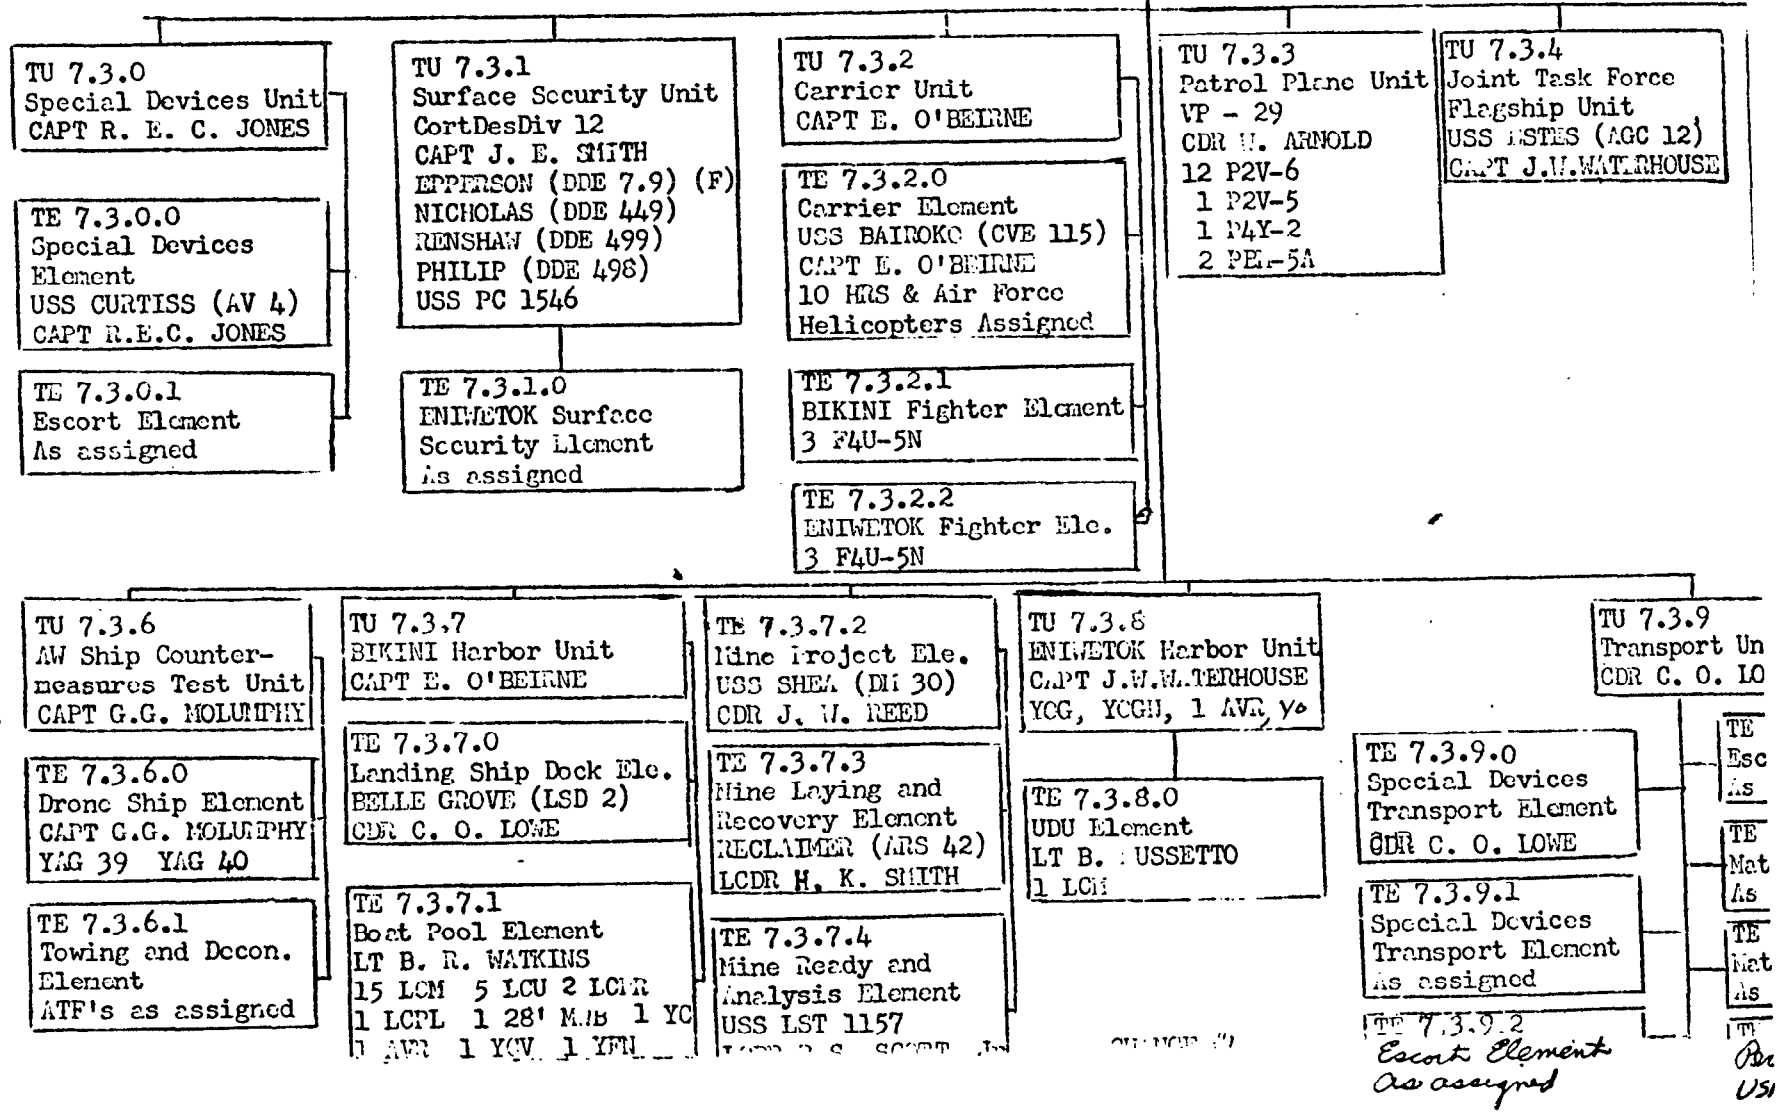 TU 7.3.0
Special Devices Unit
CAPT R. E. C. JONES
TE 7.3.0.0
Special Devices
Element
USS CURTISS (AV 4)
CAPT R.E.C. JONES
TE 7.3.0.1
Escort Element
As assigned
TU 7.3.1
Surface Security Unit
CortDesDiv 12
CAPT J. E. SMITH
EPPERSON (DDE 7.9) (F)
NICHOLAS (DDE 449)
RENSHAW (DDE 499)
PHILIP (DDE 498)
USS PC 1546
TE 7.3.1.0
ENIWETOK Surface
Security Element
As assigned
TU 7.3.2
Carrier Unit
CAPT E. O'BEIRNE
TE 7.3.2.0
Carrier Element
USS BAIROKO (CVE 115)
CAPT E. O'BEIRNE
10 HRS & Air Force
Helicopters Assigned
TE 7.3.2.1
BIKINI Fighter Element
3 F4U-5N
TE 7.3.2.2
ENIWETOK Fighter Ele.
3 F4U-5N
TU 7.3.3
Patrol Plane Unit
VP - 29
CDR W. ARNOLD
12 P2V-6
1 P2V-5
1 P4Y-2
2 PBM-5A
TU 7.3.4
Joint Task Force
Flagship Unit
USS ESTES (AGC 12)
CAPT J.W.WATERHOUSE
TU 7.3.6
AW Ship Counter-
measures Test Unit
CAPT G.G. MOLUMPHY
TE 7.3.6.0
Drone Ship Element
CAPT G.G. MOLUMPHY
YAG 39 YAG 40
TE 7.3.6.1
Towing and Decon.
Element
ATF's as assigned
TU 7.3.7
BIKINI Harbor Unit
CAPT E. O'BEIRNE
TE 7.3.7.0
Landing Ship Dock Ele.
BELLE GROVE (LSD 2)
CDR C. O. LOWE
TE 7.3.7.1
Boat Pool Element
LT B. R. WATKINS
15 LCM 5 LCU 2 LCPR
1 LCPL 1 28' MWB 1 YC
1 AVR 1 YCV 1 YFN
TE 7.3.7.2
Mine Project Ele.
USS SHEA (DM 30)
CDR J. W. REED
TE 7.3.7.3
Mine Laying and
Recovery Element
RECLAIMER (ARS 42)
LCDR H. K. SMITH
TE 7.3.7.4
Mine Ready and
Analysis Element
USS LST 1157
TU 7.3.8
ENIWETOK Harbor Unit
CAPT J.W.WATERHOUSE
YOG, YOGN, 1 AVR, yo
TE 7.3.8.0
UDU Element
LT B. USSETTO
1 LCM
TU 7.3.9
Transport Un
CDR C. O. LO
TE 7.3.9.0
Special Devices
Transport Element
CDR C. O. LOWE
TE 7.3.9.1
Special Devices
Transport Element
As assigned
TE 7.3.9.2
Escort Element
as assigned
TE
Esc
As
TE
Mat
As
TE
Mat
As
TE